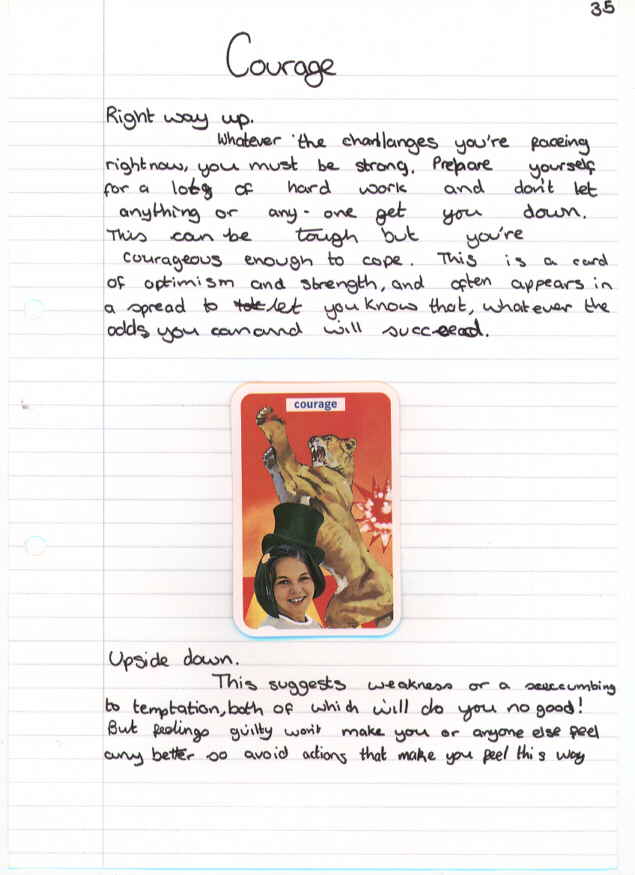 35
Courage
Right way up.
Whatever the charllanges you're faceing
right now, you must be strong. Prepare yourself
for a lots of hard work and don't let
anything or any-one get you down.
This can be tough but you're
courageous enough to cope. This is a card
of optimism and strength, and often appears in
a spread to let you know that, whatever the
odds you can and will succeed.
courage
Upside down.
This suggests weakness or a succumbing
to temptation, both of which will do you no good!
But feelings guilty won't make you or anyone else feel
any better so avoid actions that make you feel this way